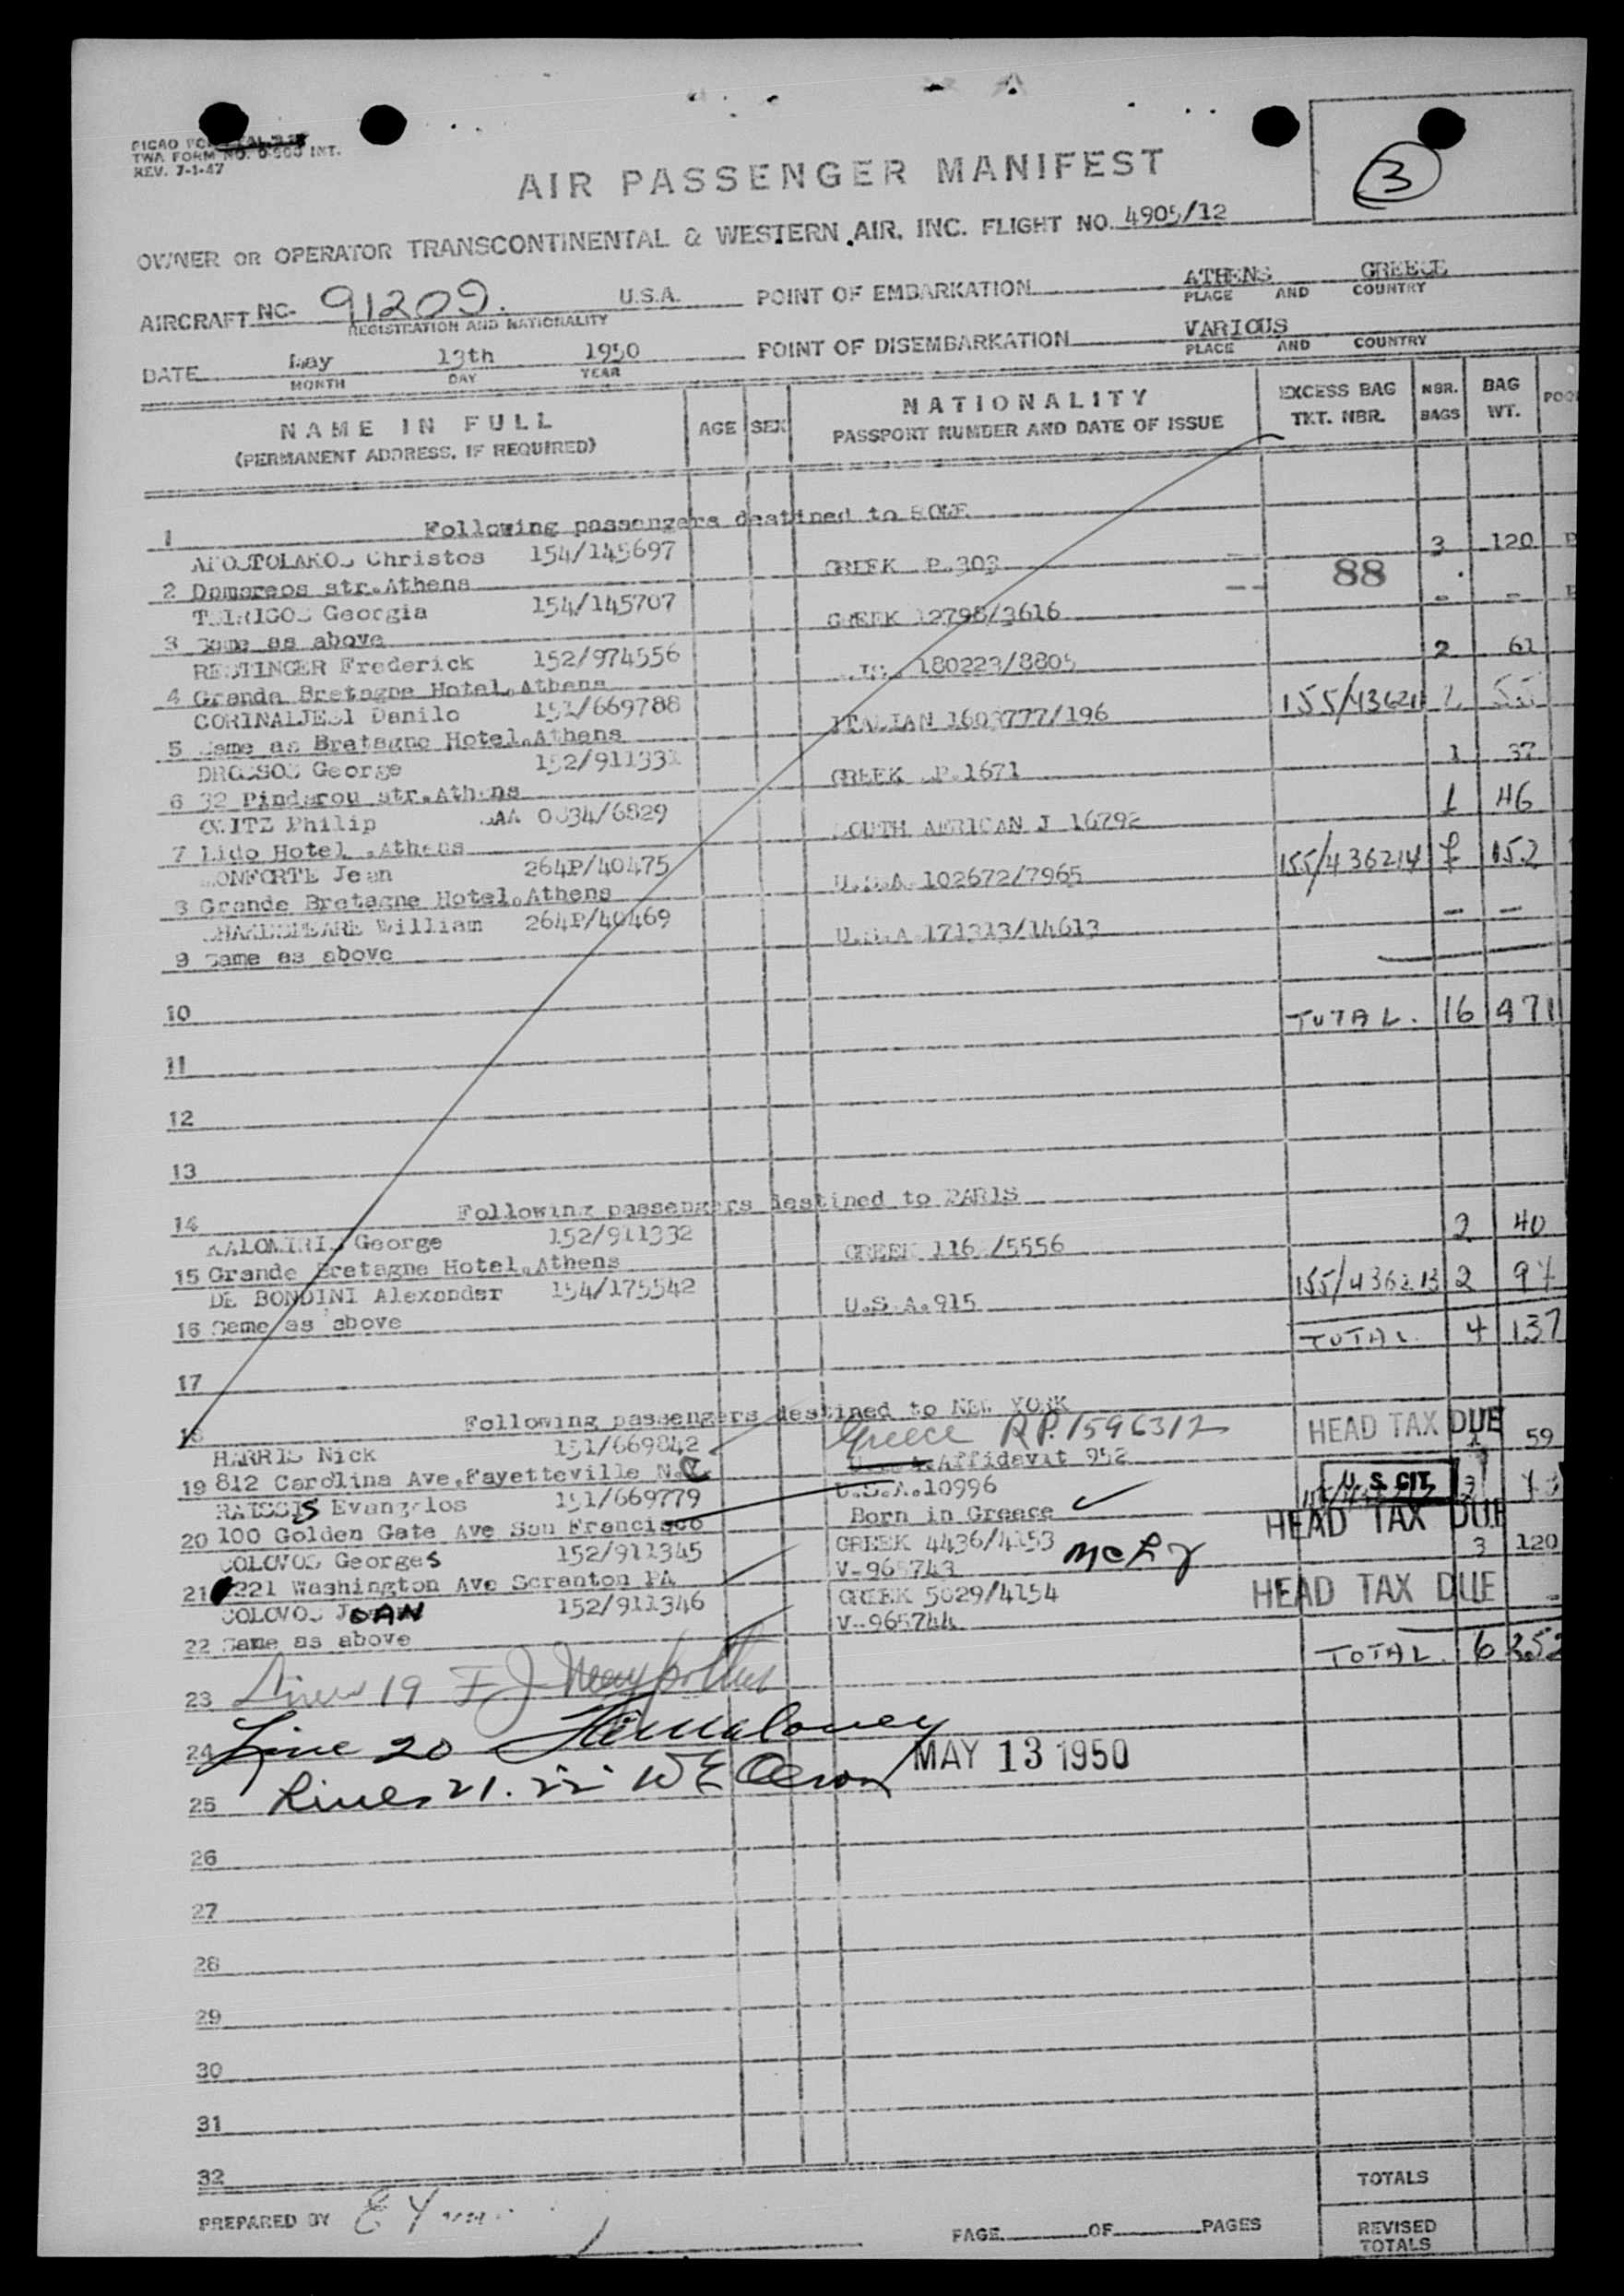 TWA FORM NO. 0-500 INT.
REV. 7-1-47
3
AIR PASSENGER MANIFEST
OWNER OR OPERATOR TRANSCONTINENTAL & WESTERN AIR, INC. FLIGHT NO. 4905/12
AIRCRAFT NC- 91209. U.S.A. POINT OF EMBARKATION ATHENS GREECE
REGISTRATION AND NATIONALITY PLACE AND COUNTRY
DATE May 13th 1950 POINT OF DISEMBARKATION VARIOUS
MONTH DAY YEAR PLACE AND COUNTRY
NAME IN FULL AGE SEX NATIONALITY EXCESS BAG NBR. BAG
(PERMANENT ADDRESS, IF REQUIRED) PASSPORT NUMBER AND DATE OF ISSUE TKT. NBR. BAGS WT.
1 Following passengers destined to ROME
APOSTOLAKOS Christos 154/145697 GREEK P.303 3 120
2 Domoreos str.Athens 88
Georgia 154/145707 GREEK 12798/3616 - -
3 Same as above
Frederick 152/974556 180223/8805 2 61
4 Grande Bretagne Hotel.Athens
Danilo 151/669788 ITALIAN 1603777/196
5 Same as Bretagne Hotel.Athens
DROSSOS George 152/911331 GREEK P.1671 1 37
6 32 Pindarou str.Athens
Philip 0034/6829 SOUTH AFRICAN J 16792 1 46
7 Lido Hotel .Athens
MONFORTE Jean 264P/40475 U.S.A.102672/7965 155/436214
8 Grande Bretagne Hotel.Athens
SHAKESPEARE William 264P/40469 U.S.A.171313/14613 - -
9 Same as above
10 TOTAL. 16 471
11
12
13
14 Following passengers destined to PARIS
KALOMIRIS George 152/911332 GREEK /5556 2 40
15 Grande Bretagne Hotel.Athens
DE BONDINI Alexander 154/175542 U.S.A.915 155/436213 2 97
16 Same as above
TOTAL 4 137
17
18 Following passengers destined to NEW YORK
HARRIS Nick 151/669842 Greece R.P. 1596312 HEAD TAX DUE 59
19 812 Carolina Ave.Fayetteville N.C. Affidavit 952
RAISSIS Evangelos 151/669779 U.S.A.10996 U.S. CIT.
20 100 Golden Gate Ave San Francisco Born in Greece HEAD TAX DUE
COLOVOS Georges 152/911345 GREEK 4436/4153 3 120
21 221 Washington Ave Scranton PA V-965743
COLOVOS JOAN 152/911346 GREEK 5029/4154 HEAD TAX DUE -
22 Same as above V-965744
TOTAL. 6 252
23 Line 19 F J
24 Line 20 Maloney
MAY 13 1950
25 Lines 21. 22 W E
26
27
28
29
30
31
32
TOTALS
PREPARED BY
PAGE OF PAGES
REVISED
TOTALS